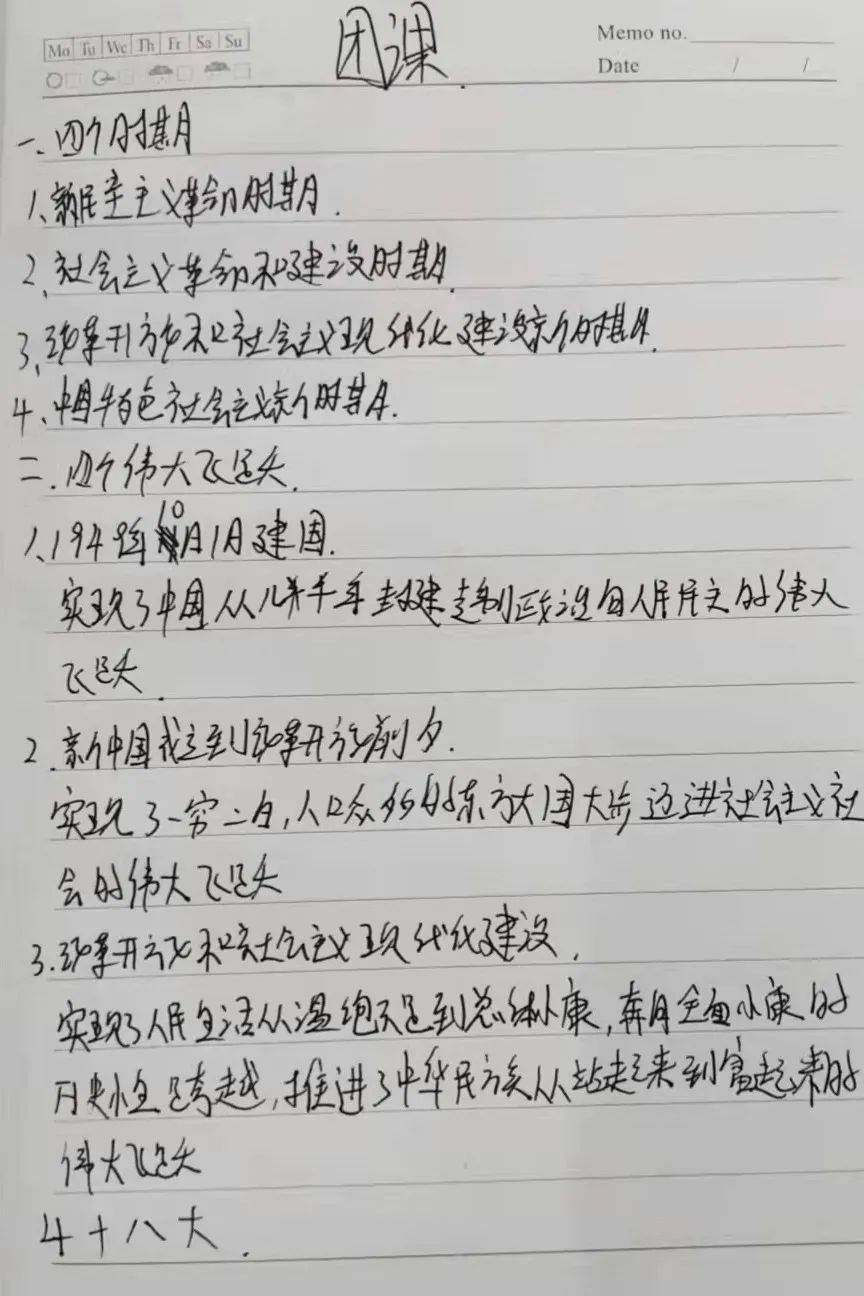 Mo Tu We Th Fr Sa Su
团课
Memo no.
Date / /
一、四个时期
1、新民主主义革命时期.
2、社会主义革命和建设时期.
3、改革开放和社会主义现代化建设新时期.
4、中国特色社会主义新时期.
二.四个伟大飞跃.
1、1949年10月1日建国.
实现了中国从几千年封建专制政治向人民民主的伟大
飞跃.
2.新中国成立到改革开放前夕.
实现了一穷二白,人口众多的东方大国大步迈进社会主义社
会的伟大飞跃
3.改革开放和社会主义现代化建设.
实现了人民生活从温饱不足到总体小康,奔向全面小康的
历史性跨越,推进了中华民族从站起来到富起来的
伟大飞跃
4十八大.